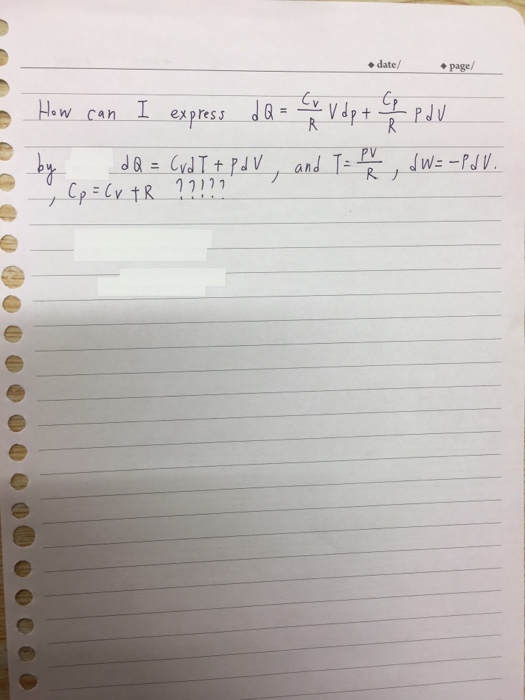 ◆ date/ ◆ page/
How can I express dQ = Cv/R Vdp + Cp/R PdV
by dQ = CvdT + PdV , and T = PV/R , dW = -PdV.
, Cp = Cv + R ?????